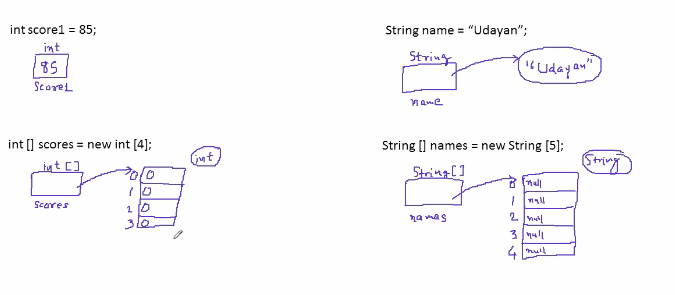 int score1 = 85;
int
85
score1
String name = “Udayan”;
String
"Udayan"
name
int [] scores = new int [4];
int []
int
0 0
1 0
2 0
3 0
scores
String [] names = new String [5];
String[]
String
0 null
1 null
2 null
3 null
4 null
names